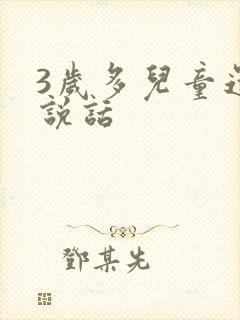 3歲多兒童還
說話
鄧某先